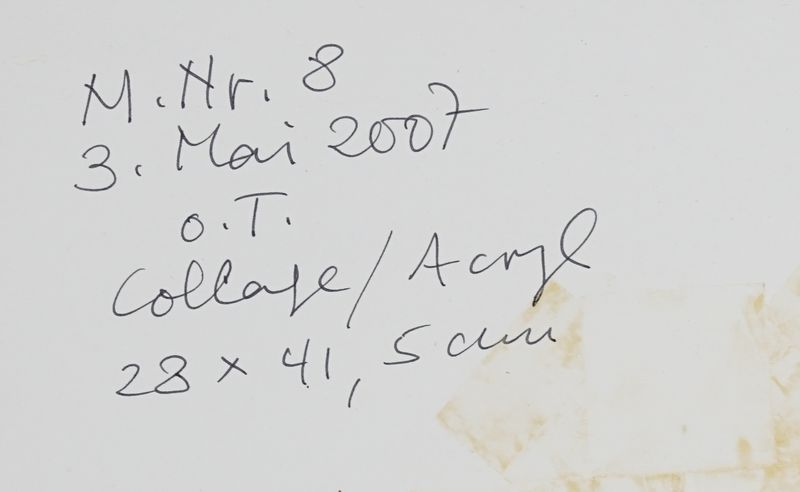 M. Nr. 8
3. Mai 2007
o.T.
Collage/Acryl
28 x 41,5 cm